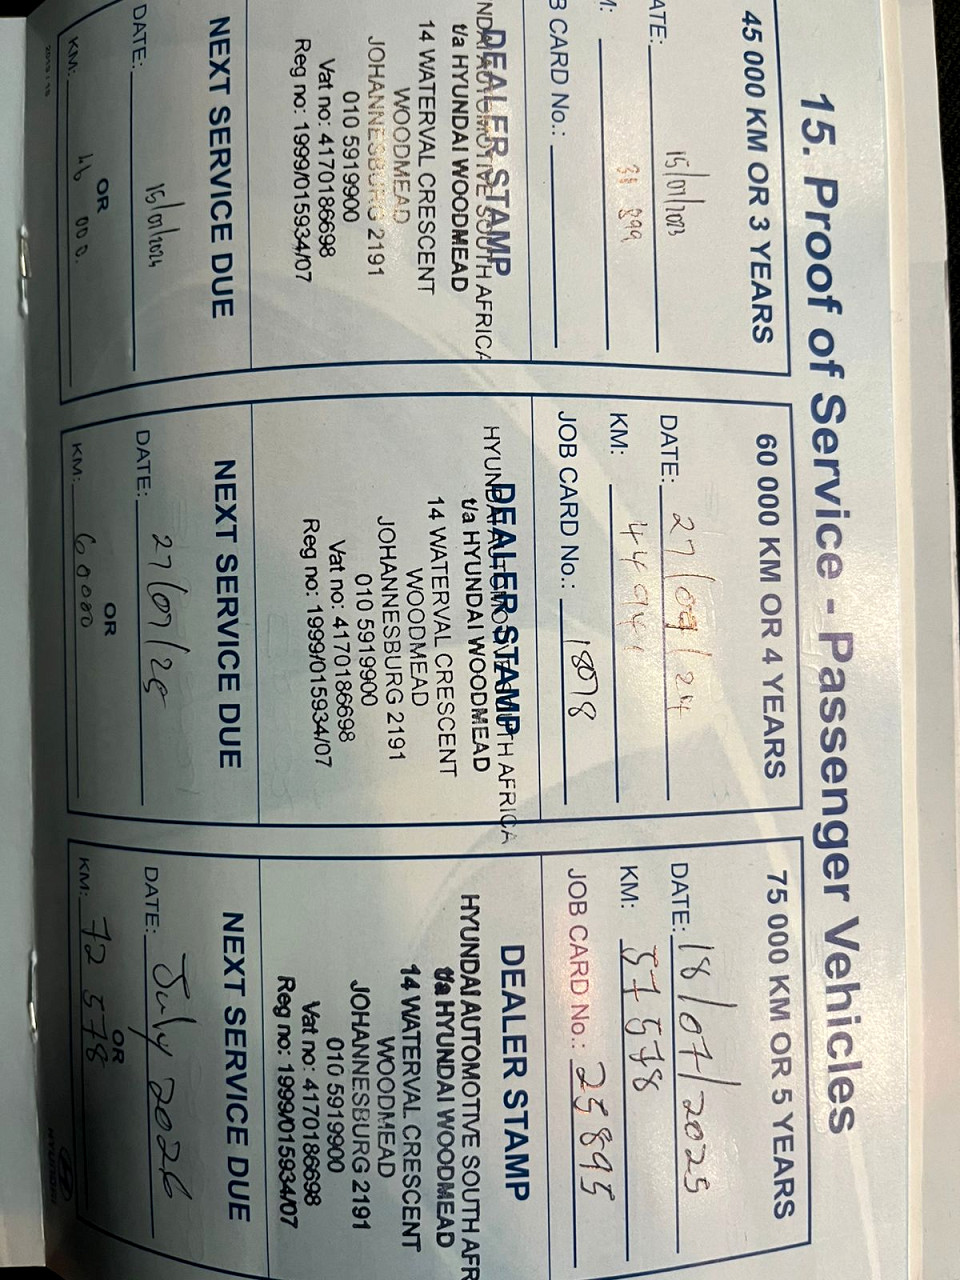 15. Proof of Service - Passenger Vehicles
45 000 KM OR 3 YEARS
ATE: 15/01/2023
M: 899
B CARD No.:
DEALER STAMP
t/a HYUNDAI WOODMEAD
14 WATERVAL CRESCENT
WOODMEAD
JOHANNESBURG 2191
010 5919900
Vat no: 4170186698
Reg no: 1999/015934/07
NEXT SERVICE DUE
DATE: 15/01/2024
OR
KM: 46 000.
2019 / 10
60 000 KM OR 4 YEARS
DATE: 27/09/24
KM: 44 94
JOB CARD No.: 18078
DEALER STAMP
t/a HYUNDAI WOODMEAD
14 WATERVAL CRESCENT
WOODMEAD
JOHANNESBURG 2191
010 5919900
Vat no: 4170186698
Reg no: 1999/015934/07
NEXT SERVICE DUE
DATE: 27/09/25
OR
KM: 60000
75 000 KM OR 5 YEARS
DATE: 18/07/2025
KM: 57 578
JOB CARD No.: 25895
DEALER STAMP
HYUNDAI AUTOMOTIVE SOUTH AFR
t/a HYUNDAI WOODMEAD
14 WATERVAL CRESCENT
WOODMEAD
JOHANNESBURG 2191
010 5919900
Vat no: 4170186698
Reg no: 1999/015934/07
NEXT SERVICE DUE
DATE: July 2026
OR
KM: 72 578
HYUNDAI